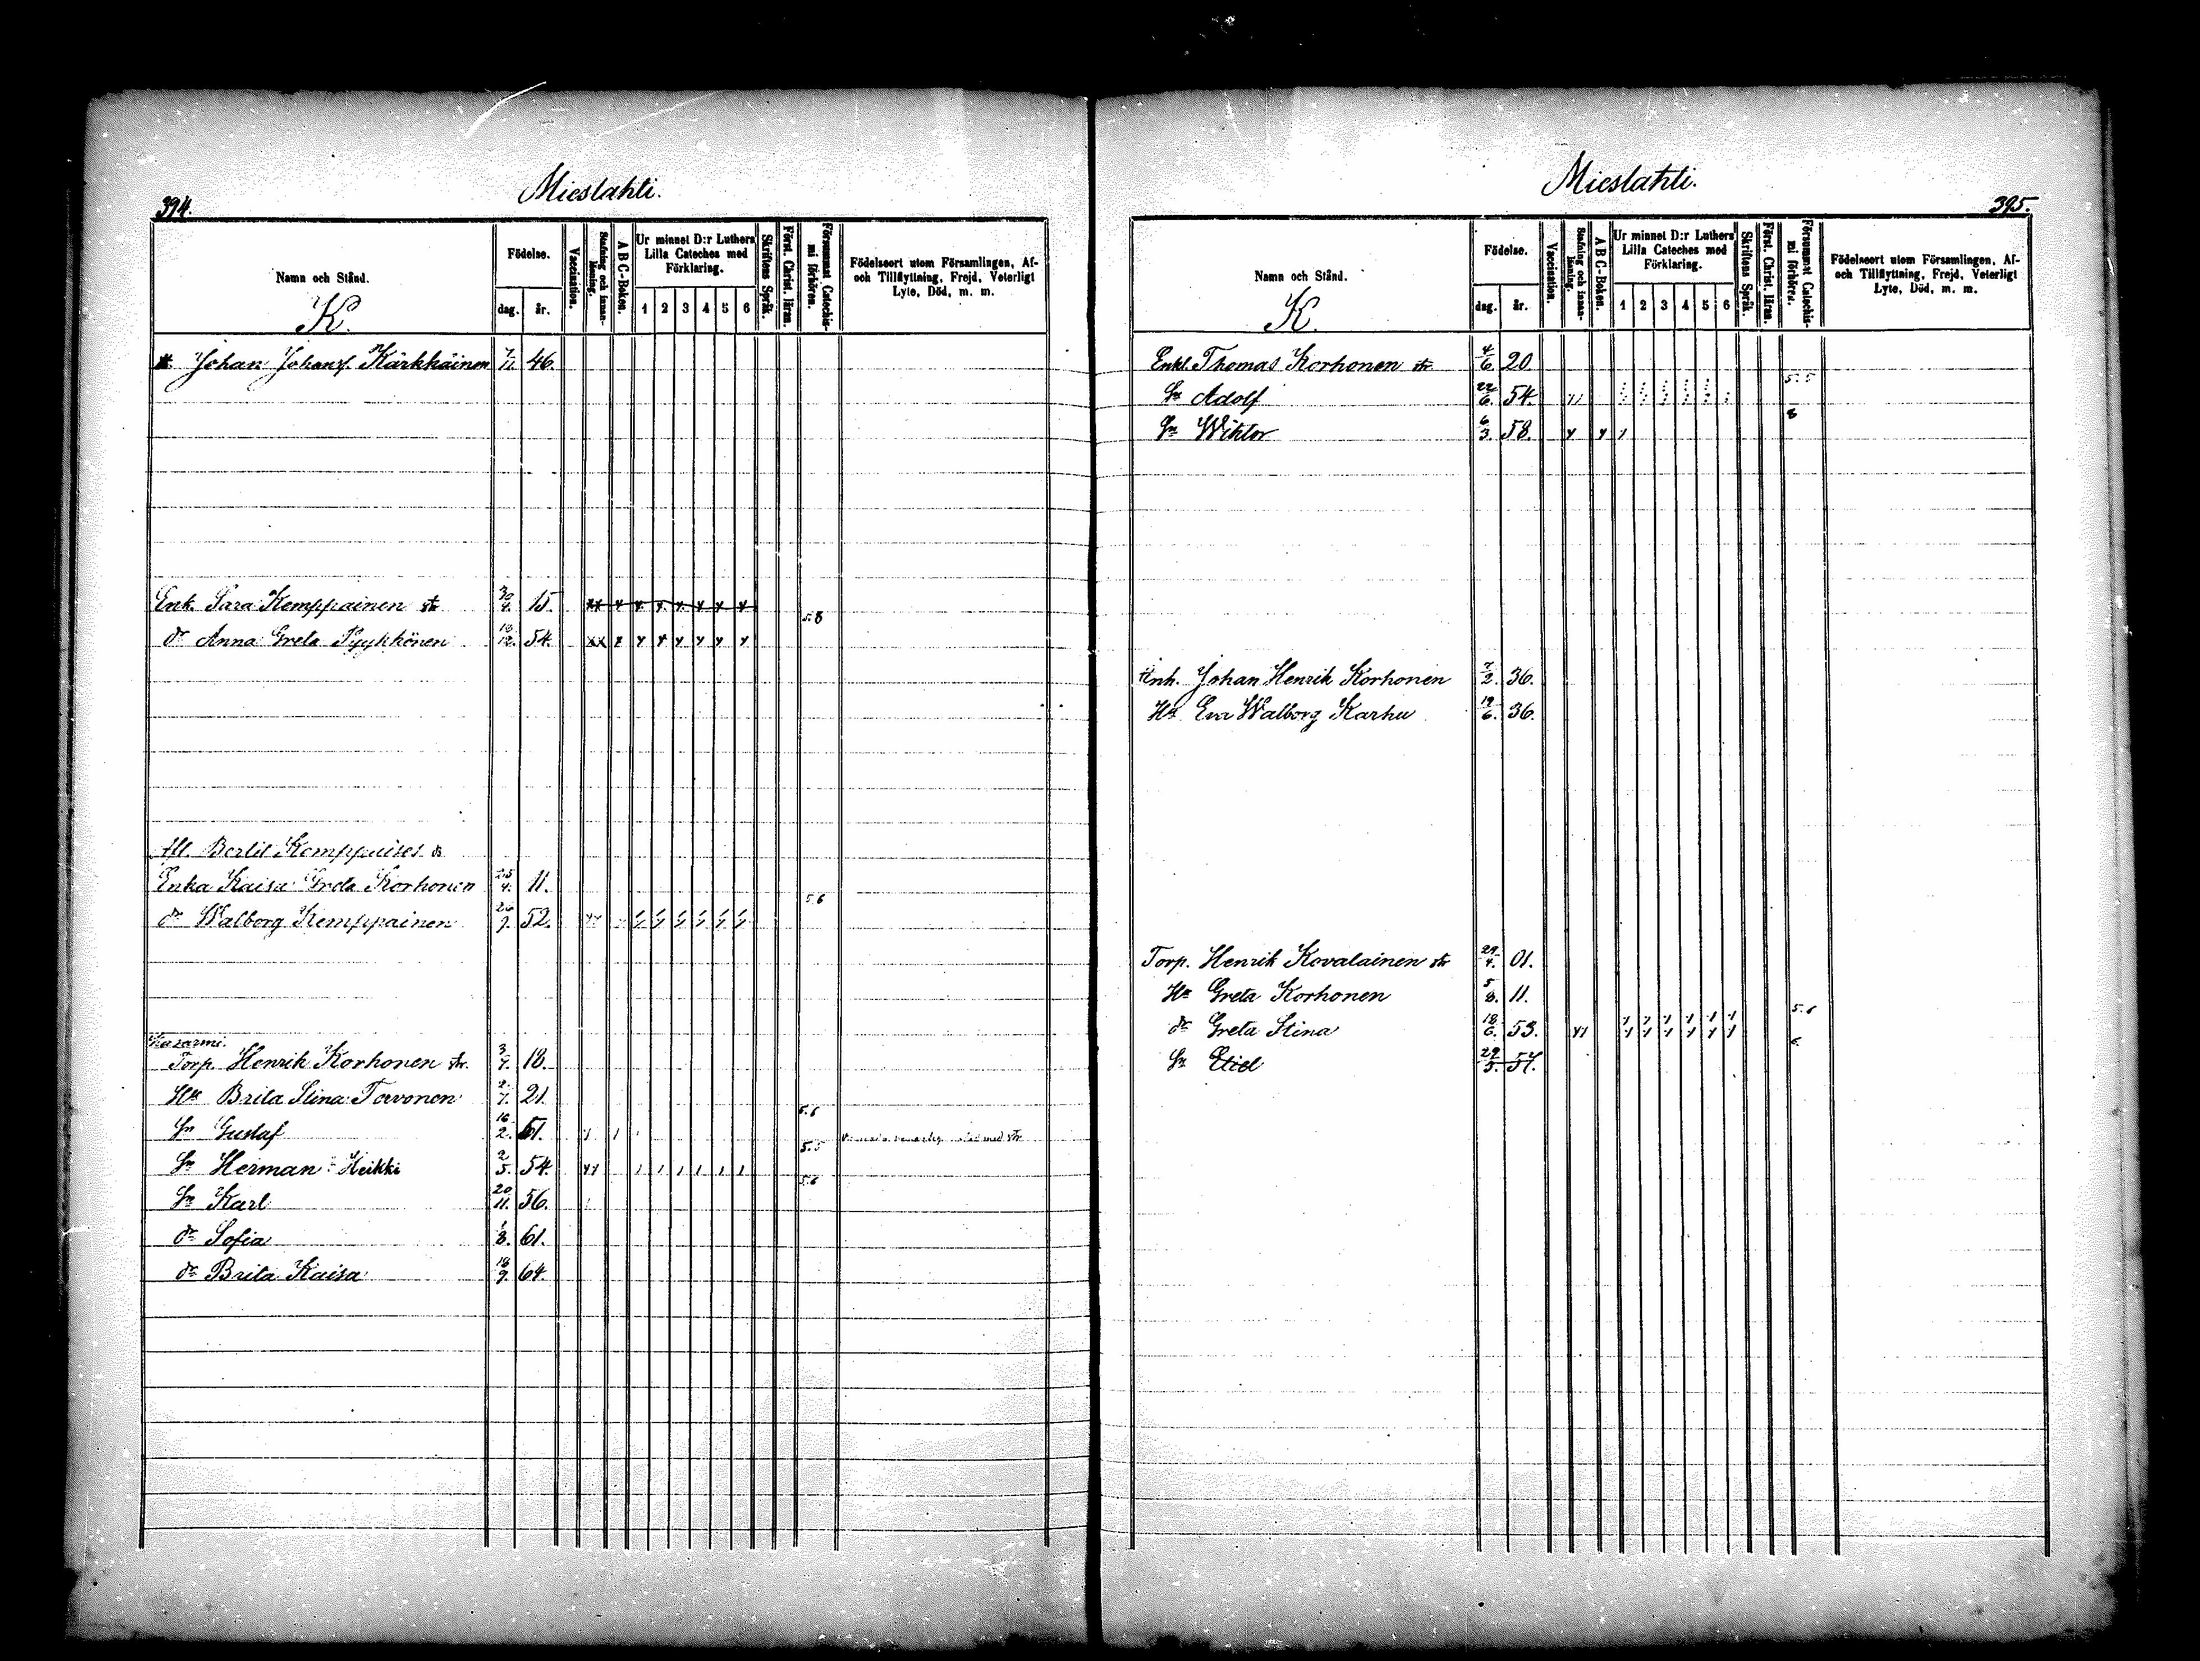 394.
Mieslahti.
Namn och Stånd.
K.
Födelse.
dag.
år.
Vaccination.
Stafning och innanläsning.
A B C-Boken.
Ur minnet D:r Luthers Lilla Cateches med Förklaring.
1 2 3 4 5 6
Skriftens Språk.
Först. Christ. läran.
Försummat Catechismi förhören.
Födelseort utom Församlingen, Af- och Tillflyttning, Frejd, Veterligt Lyte, Död, m. m.
Johan Johansf. Kärkkäinen 7/11. 46.
Enk. Sara Kemppainen 30/4. 15.
dr Anna Greta Pyykkönen 18/12. 54. 5.8
tfl. Bertil Kemppaises
Enka Kaisa Greta Korhonen 25/4. 11.
dr Walborg Kemppainen 26/7. 52. 5.6
Kasarmi.
Torp. Henrik Korhonen 3/7. 18.
Hu Brita Stina Torvonen 2/7. 21.
Sn Gustaf 16/2. 51. 5.6
Sn Herman Heikki 2/5. 54. 5.5
Sn Karl 20/11. 56. 5.6
dr Sofia 1/8. 61.
dr Brita Kaisa 18/9. 64.
Mieslahti.
395.
Namn och Stånd.
K.
Födelse.
dag.
år.
Vaccination.
Stafning och innanläsning.
A B C-Boken.
Ur minnet D:r Luthers Lilla Cateches med Förklaring.
1 2 3 4 5 6
Skriftens Språk.
Först. Christ. läran.
Försummat Catechismi förhören.
Födelseort utom Församlingen, Af- och Tillflyttning, Frejd, Veterligt Lyte, Död, m. m.
Enkl. Thomas Korhonen 4/6. 20.
Sn Adolf 22/6. 54. 5.5
Sn Wiktor 6/3. 58. 8
Inh. Johan Henrik Korhonen 7/2. 36.
Hu Eva Walborg Karhu 19/6. 36.
Torp. Henrik Kovalainen 29/4. 01.
Hu Greta Korhonen 5/8. 11.
dr Greta Stina 18/6. 53. 5.6
Sn Etiel 29/5. 57. 6.